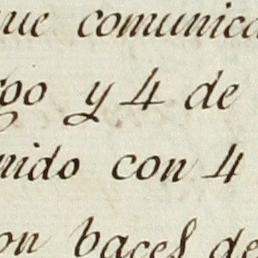 que comunica
y 4 de
nido con 4
on baces de